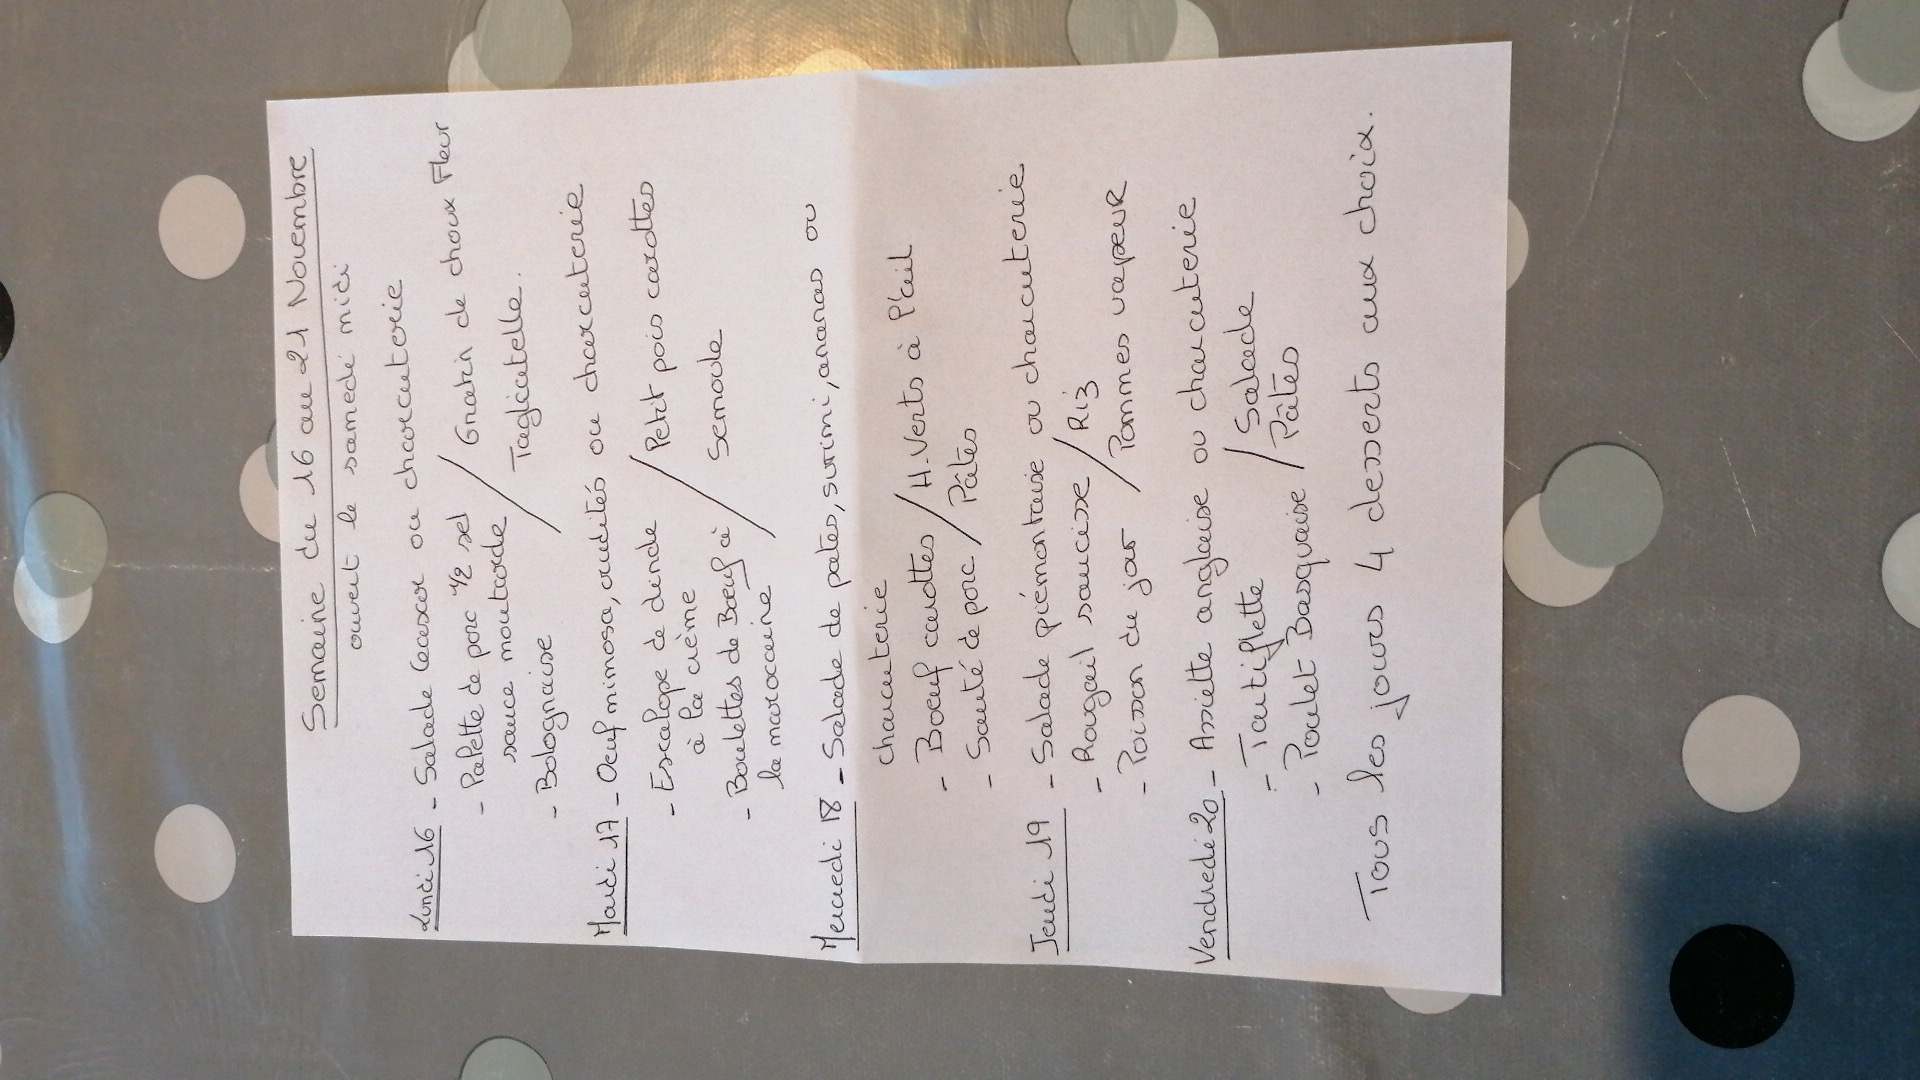 Semaine du 16 au 21 Novembre
ouvert le samedi midi
Lundi 16 - Salade Cæsar ou charcuterie
- Palette de porc 1/2 sel / Gratin de choux Fleur
sauce moutarde
- Bolognaise / Tagliatelle.
Mardi 17 - Oeuf mimosa, crudités ou charcuterie
- Escalope de dinde / Petit pois carottes
à la crème
- Boulettes de Boeuf à / Semoule
la marocaine
Mercredi 18 - Salade de pates, surimi, ananas ou
charcuterie
- Boeuf carottes / H. Verts à l'ail
- Sauté de porc / Pâtes
Jeudi 19 - Salade piémontaise ou charcuterie
- Rougail saucisse / Riz
- Poisson du jour / Pommes vapeur
Vendredi 20 - Assiette anglaise ou charcuterie
- Tartiflette / Salade
- Poulet Basquaise / Pâtes
Tous les jours 4 desserts aux choix.